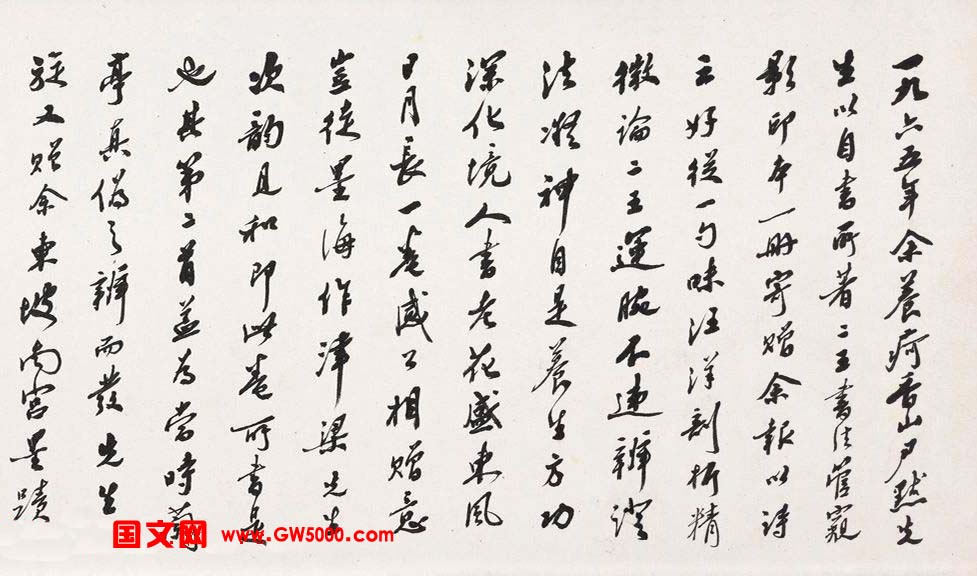 一九六五年余养疴香山尹默先
生以自书所著二王书法管窥
影印本一册寄赠余报以诗
云好從一勺味汪洋剖析精
微論二王運腕不违辨證
法凝神自是養生方功
深化境人書老花盛東風
日月長一卷感公相赠意
豈徒墨海作津梁先生
次韵且和即此卷所書是
也其第二首盖为当時蘭
亭真偽之辨而發先生
旋又赠余東坡南宫墨蹟
国文网 www.GW5000.com